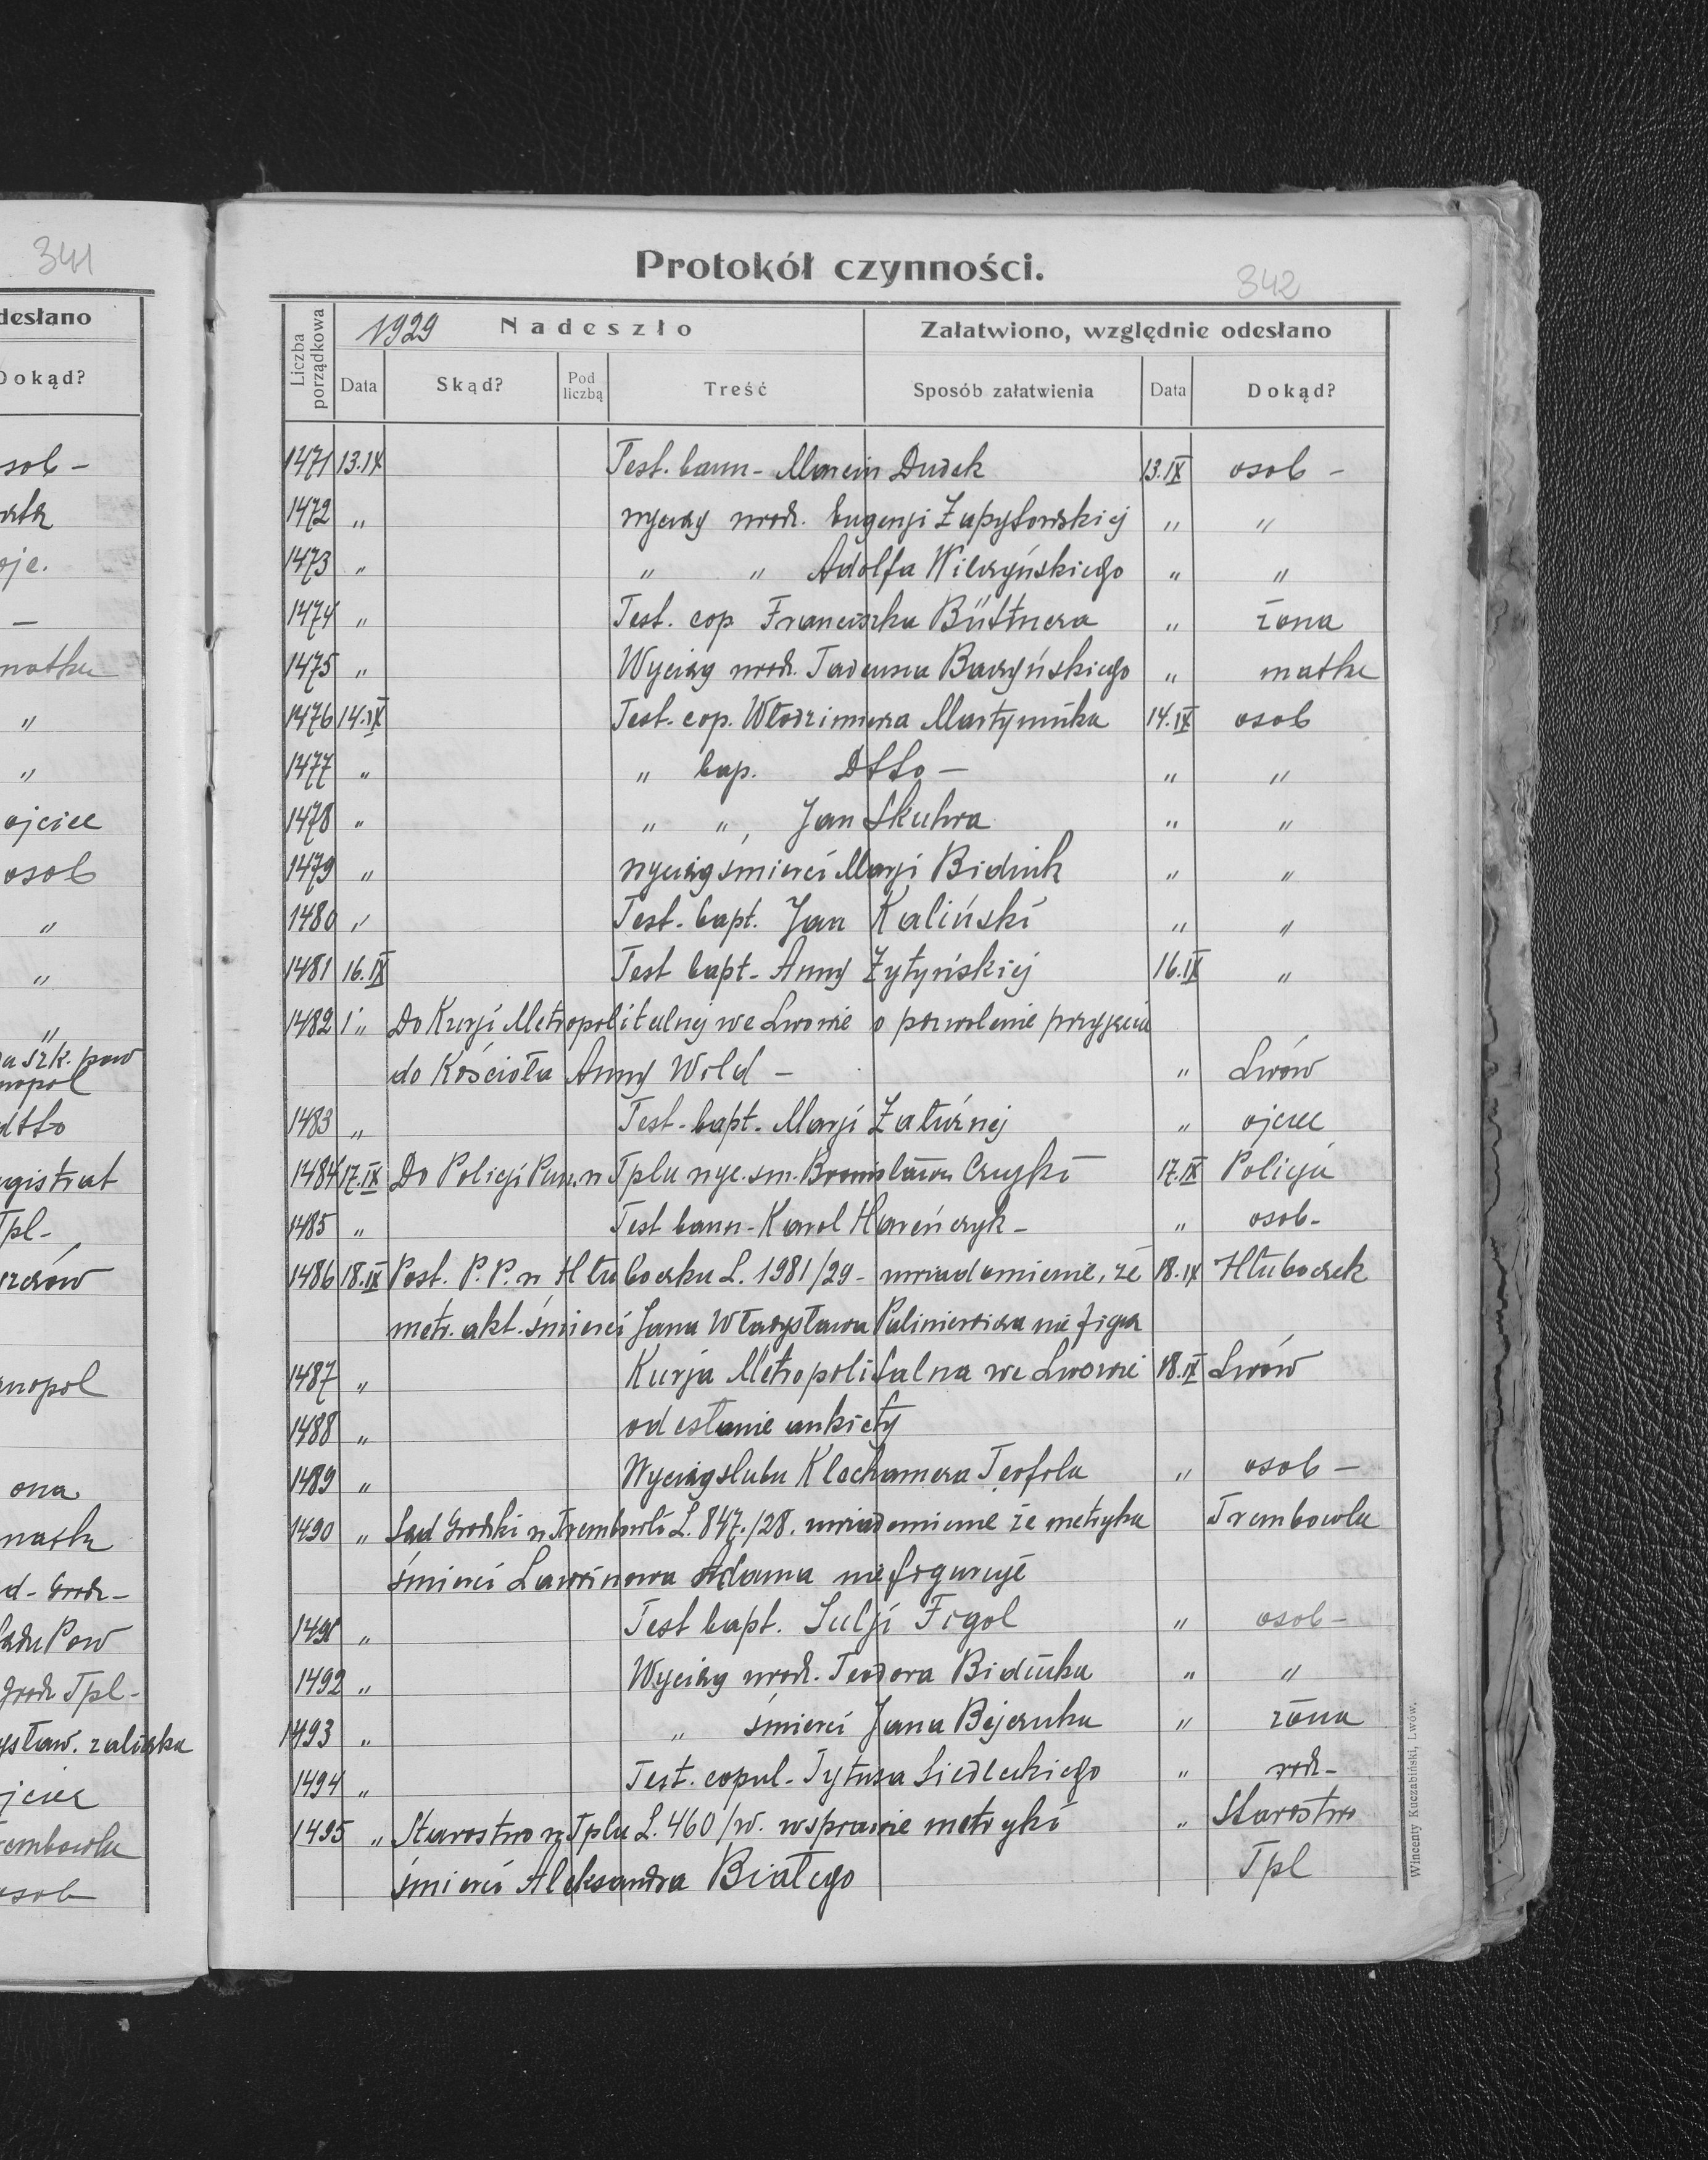 341
desłano
Dokąd?
osob -
matka
"
"
ojciec
osob
"
"
"
nopol
dtto
magistrat
Tpl-
nopol
ona
matk
d - Grodz-
Sądu Pow
grodz Tpl-
ysław. zaliczka
ojciec
Trembowla
osob
Protokół czynności.
342
Liczba porządkowa
1929 Nadeszło
Załatwiono, względnie odesłano
Data Skąd? Pod liczbą Treść Sposób załatwienia Data Dokąd?
1471 13.IX Test. bann - Marcin Dudek 13.IX osob -
1472 " wyciąg urodz. Eugenji Zapytowskiej " "
1473 " " " Adolfa Wilczyńskiego " "
1474 " Test. cop Franciszka Büttnera " żona
1475 " Wyciąg urodz. Tadeusza Baczyńskiego " matka
1476 14.IX Test. cop. Włodzimierza Martyniuka 14.IX osob
1477 " " bap. Dtto - " "
1478 " " ", Jan Skuhra " "
1479 " wyciąg śmierci Marji Bidiuk " "
1480 " Test. bapt. Jan Kaliński " "
1481 16.IX Test bapt - Anny Żytyńskiej 16.IX "
1482 " Do Kurji Metropolitalnej we Lwowie o pozwolenie przyjęcia
do Kościoła Anny Wold - " Lwów
1483 " Test - bapt. Marji Załuźnej " ojciec
1484 17.IX Do Policji Pań. w Tplu wyc. śm. Bronisława Czuyki 17.IX Policja
1485 " Test bann - Karol Hareńczyk - " osob -
1486 18.IX Post. P.P. w Hłuboczku L. 1981/29 - uwiadomienie, że 18.IX Hłuboczek
metr. akt. śmierci Jana Władysława Paliniewicza nie figur
1487 " Kurja Metropolitalna we Lwowie 18.IX Lwów
1488 " odesłanie ankiety
1489 " Wyciąg ślubu Klechamera Teofola " osob -
1490 " Sąd Grodzki w Trembowli L. 847./28. uwiadomienie że metryka Trembowla
śmierci Lawrinowa Adama nie figuruje
1491 " Test bapt. Julji Figol " osob -
1492 " Wyciąg urodz. Teodora Bidiuka " "
1493 " " śmierci Jana Bejczuka " żona
1494 " Test. copul - Tytusa Siedleckiego " rodz -
1495 " Starostwo w Tplu L. 460/w. w sprawie metryki " Starostwo
śmierci Aleksandra Białego Tpl
Wincenty Kuczabiński, Lwów.